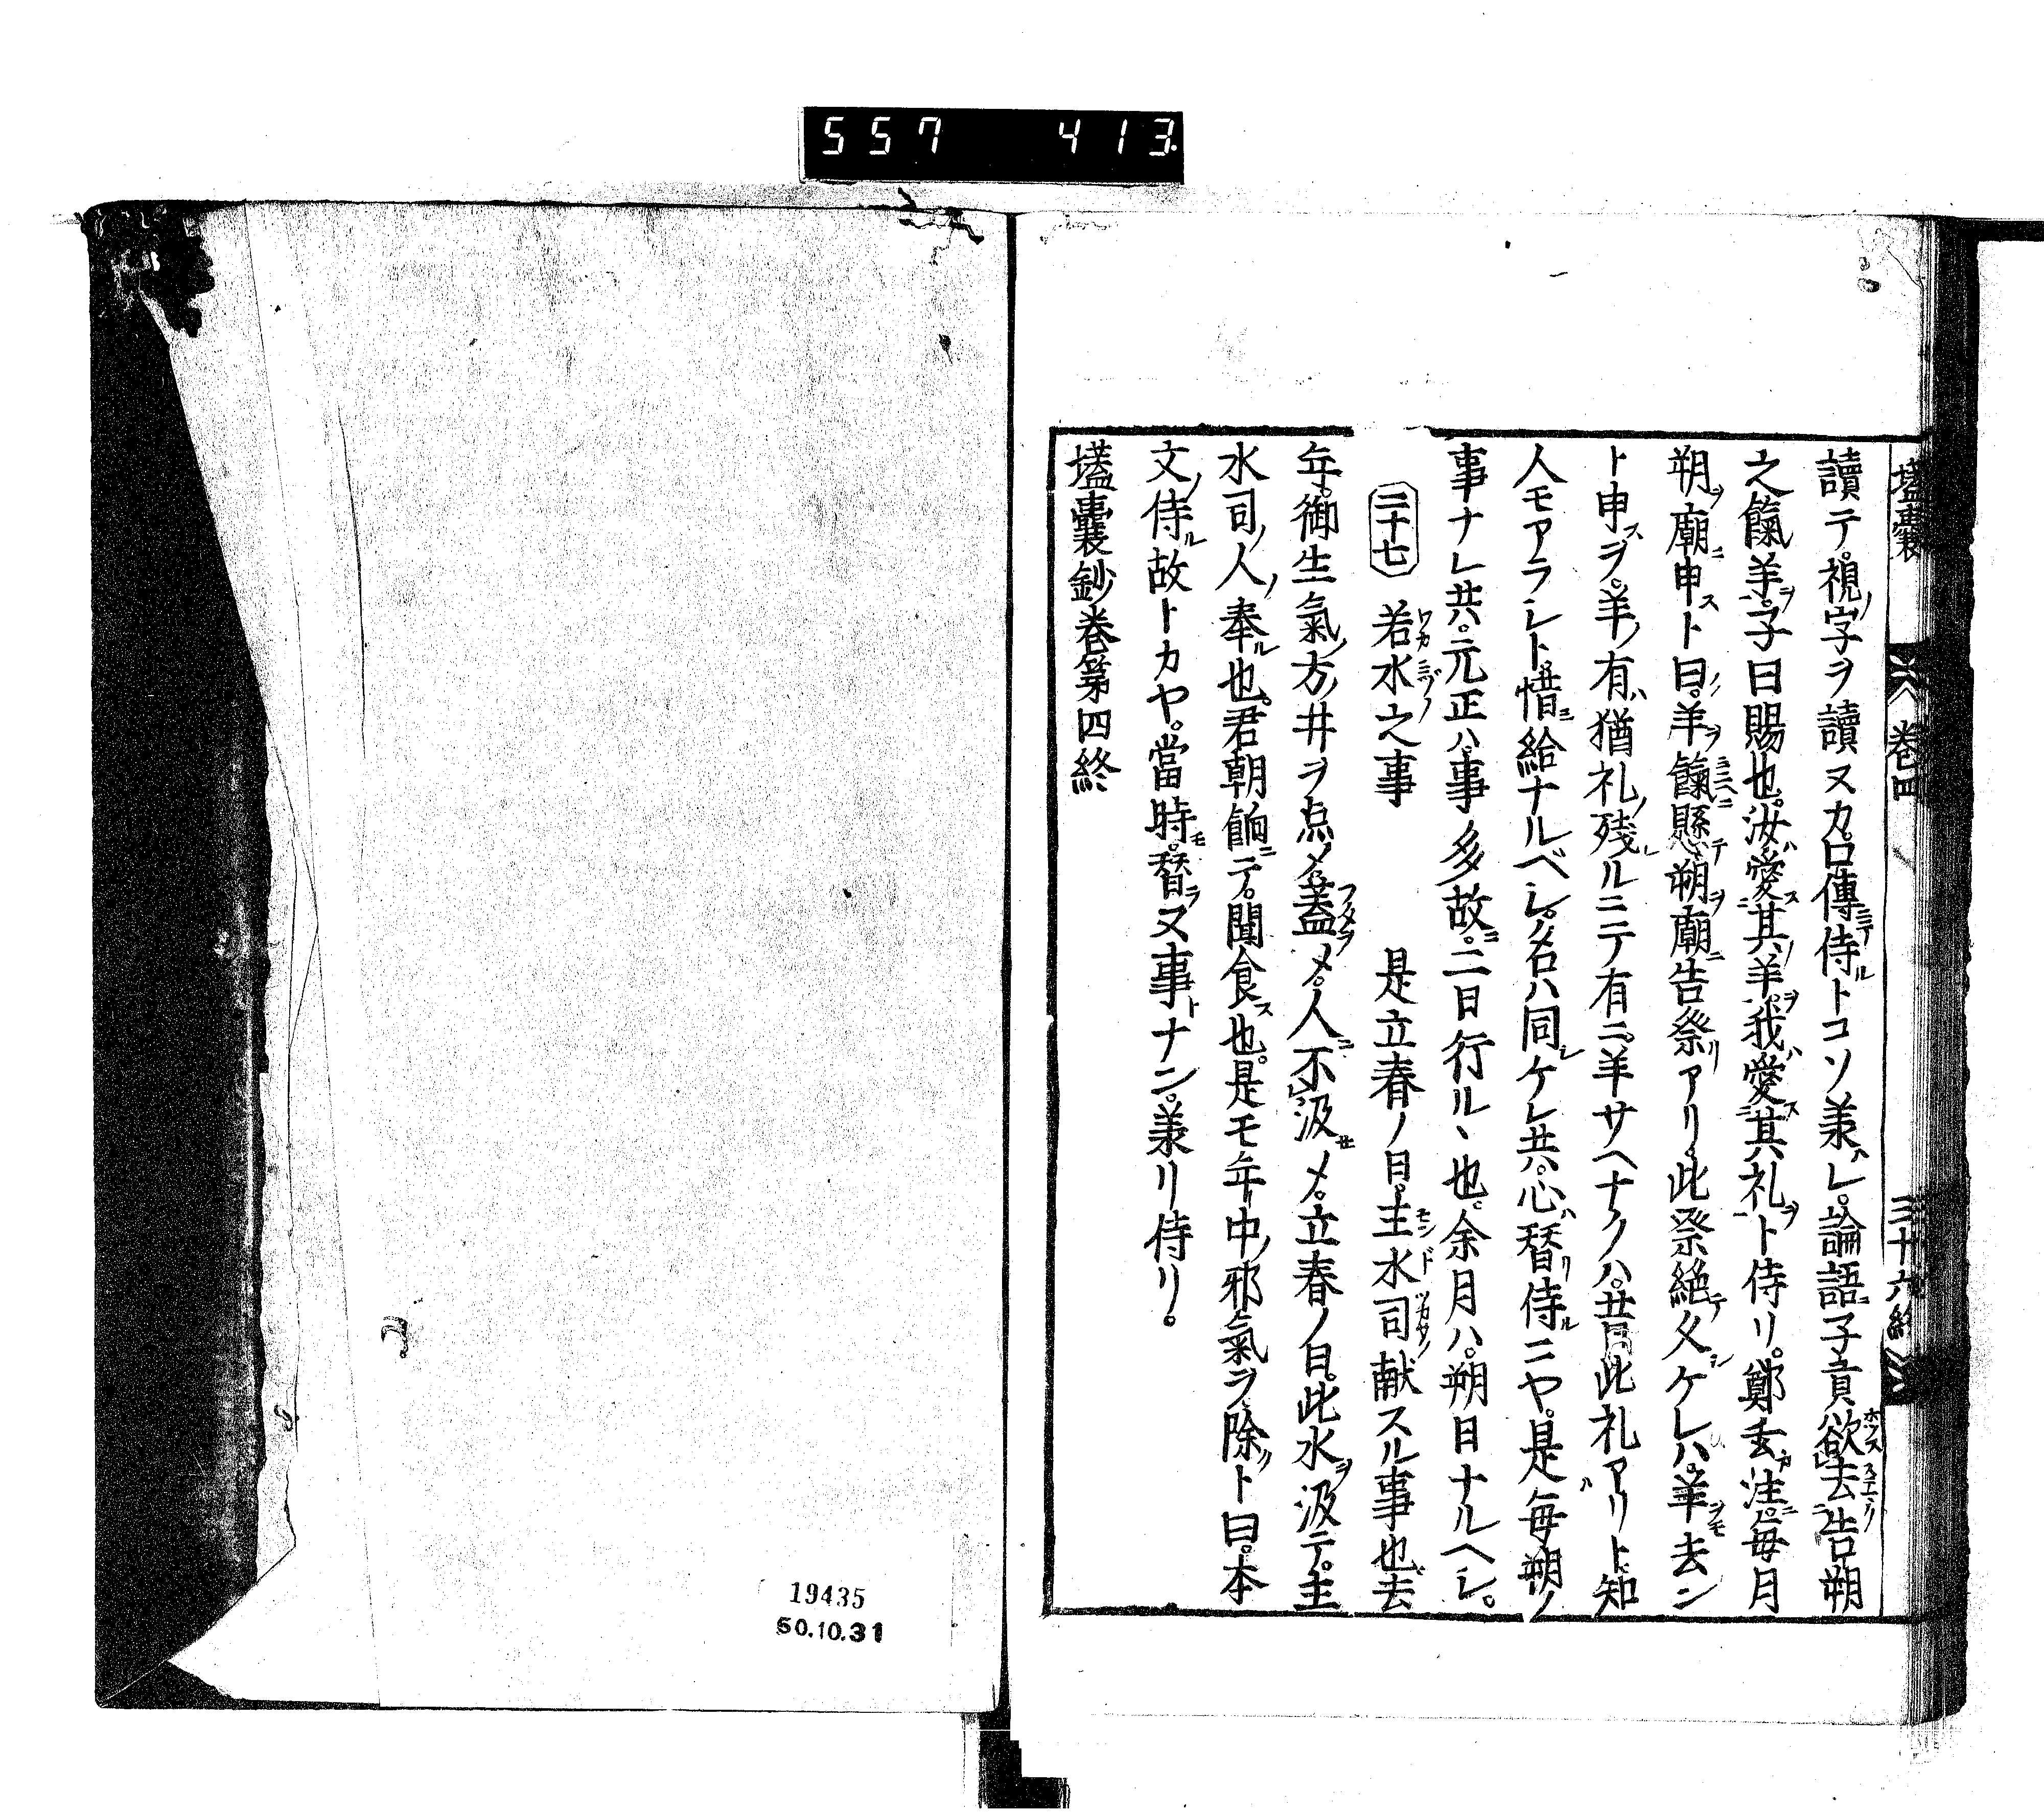 557 413.
壒囊 卷四 三十六終
讀テ。視ノ字ヲ讀ヌカ。口傳ニテ侍ルトコソ羕ハレ。論語ニ子貢欲ホツス去スエクノ告朔
之餼羊ヲ。子曰賜也。汝ハ愛ス其ノ羊ヲ。我ハ愛ス其礼ヲト侍リ。鄭玄カ注ニ。毎月
朔ヲ廟ニ申ストノ曰。羊ヲ餼ニ懸テ朔ヲ廟ニ告祭リアリ。此祭絶テ久シケレハ。羊ヲモ去ン
ト申スヲ。羊ノ有ハ猶礼ノ残レルニテ有ニ。羊サヘナクハ。昔此礼アリト知
人モアラシト。惜ミ給ナルベシ。名ハ同シケレ共。心ハ替リ侍ルニヤ。是ハ毎朔ノ
事ナレ共。元正ハ。事多故ニ。二日行ル丶也。余月ハ。朔日ナルヘシ。
二十七 若ワカ水ミヅノ之事 是立春ノ日。主モン水ド司ツカサノ献スル事也。去
年。御生氣ノ方ノ井ヲ点メ。蓋フタヲメ。人ニ不汲セメ。立春ノ日。此水ヲ汲テ。主
水司ノ人ノ奉ル也。君朝餉ニテ。聞食ス也。是モ年中ノ邪氣ヲ除クト曰。本
文ノ侍ル故トカヤ。當時モ。替ラヌ事トナン。羕リ侍リ。
壒囊鈔卷第四終
19435
50.10.31